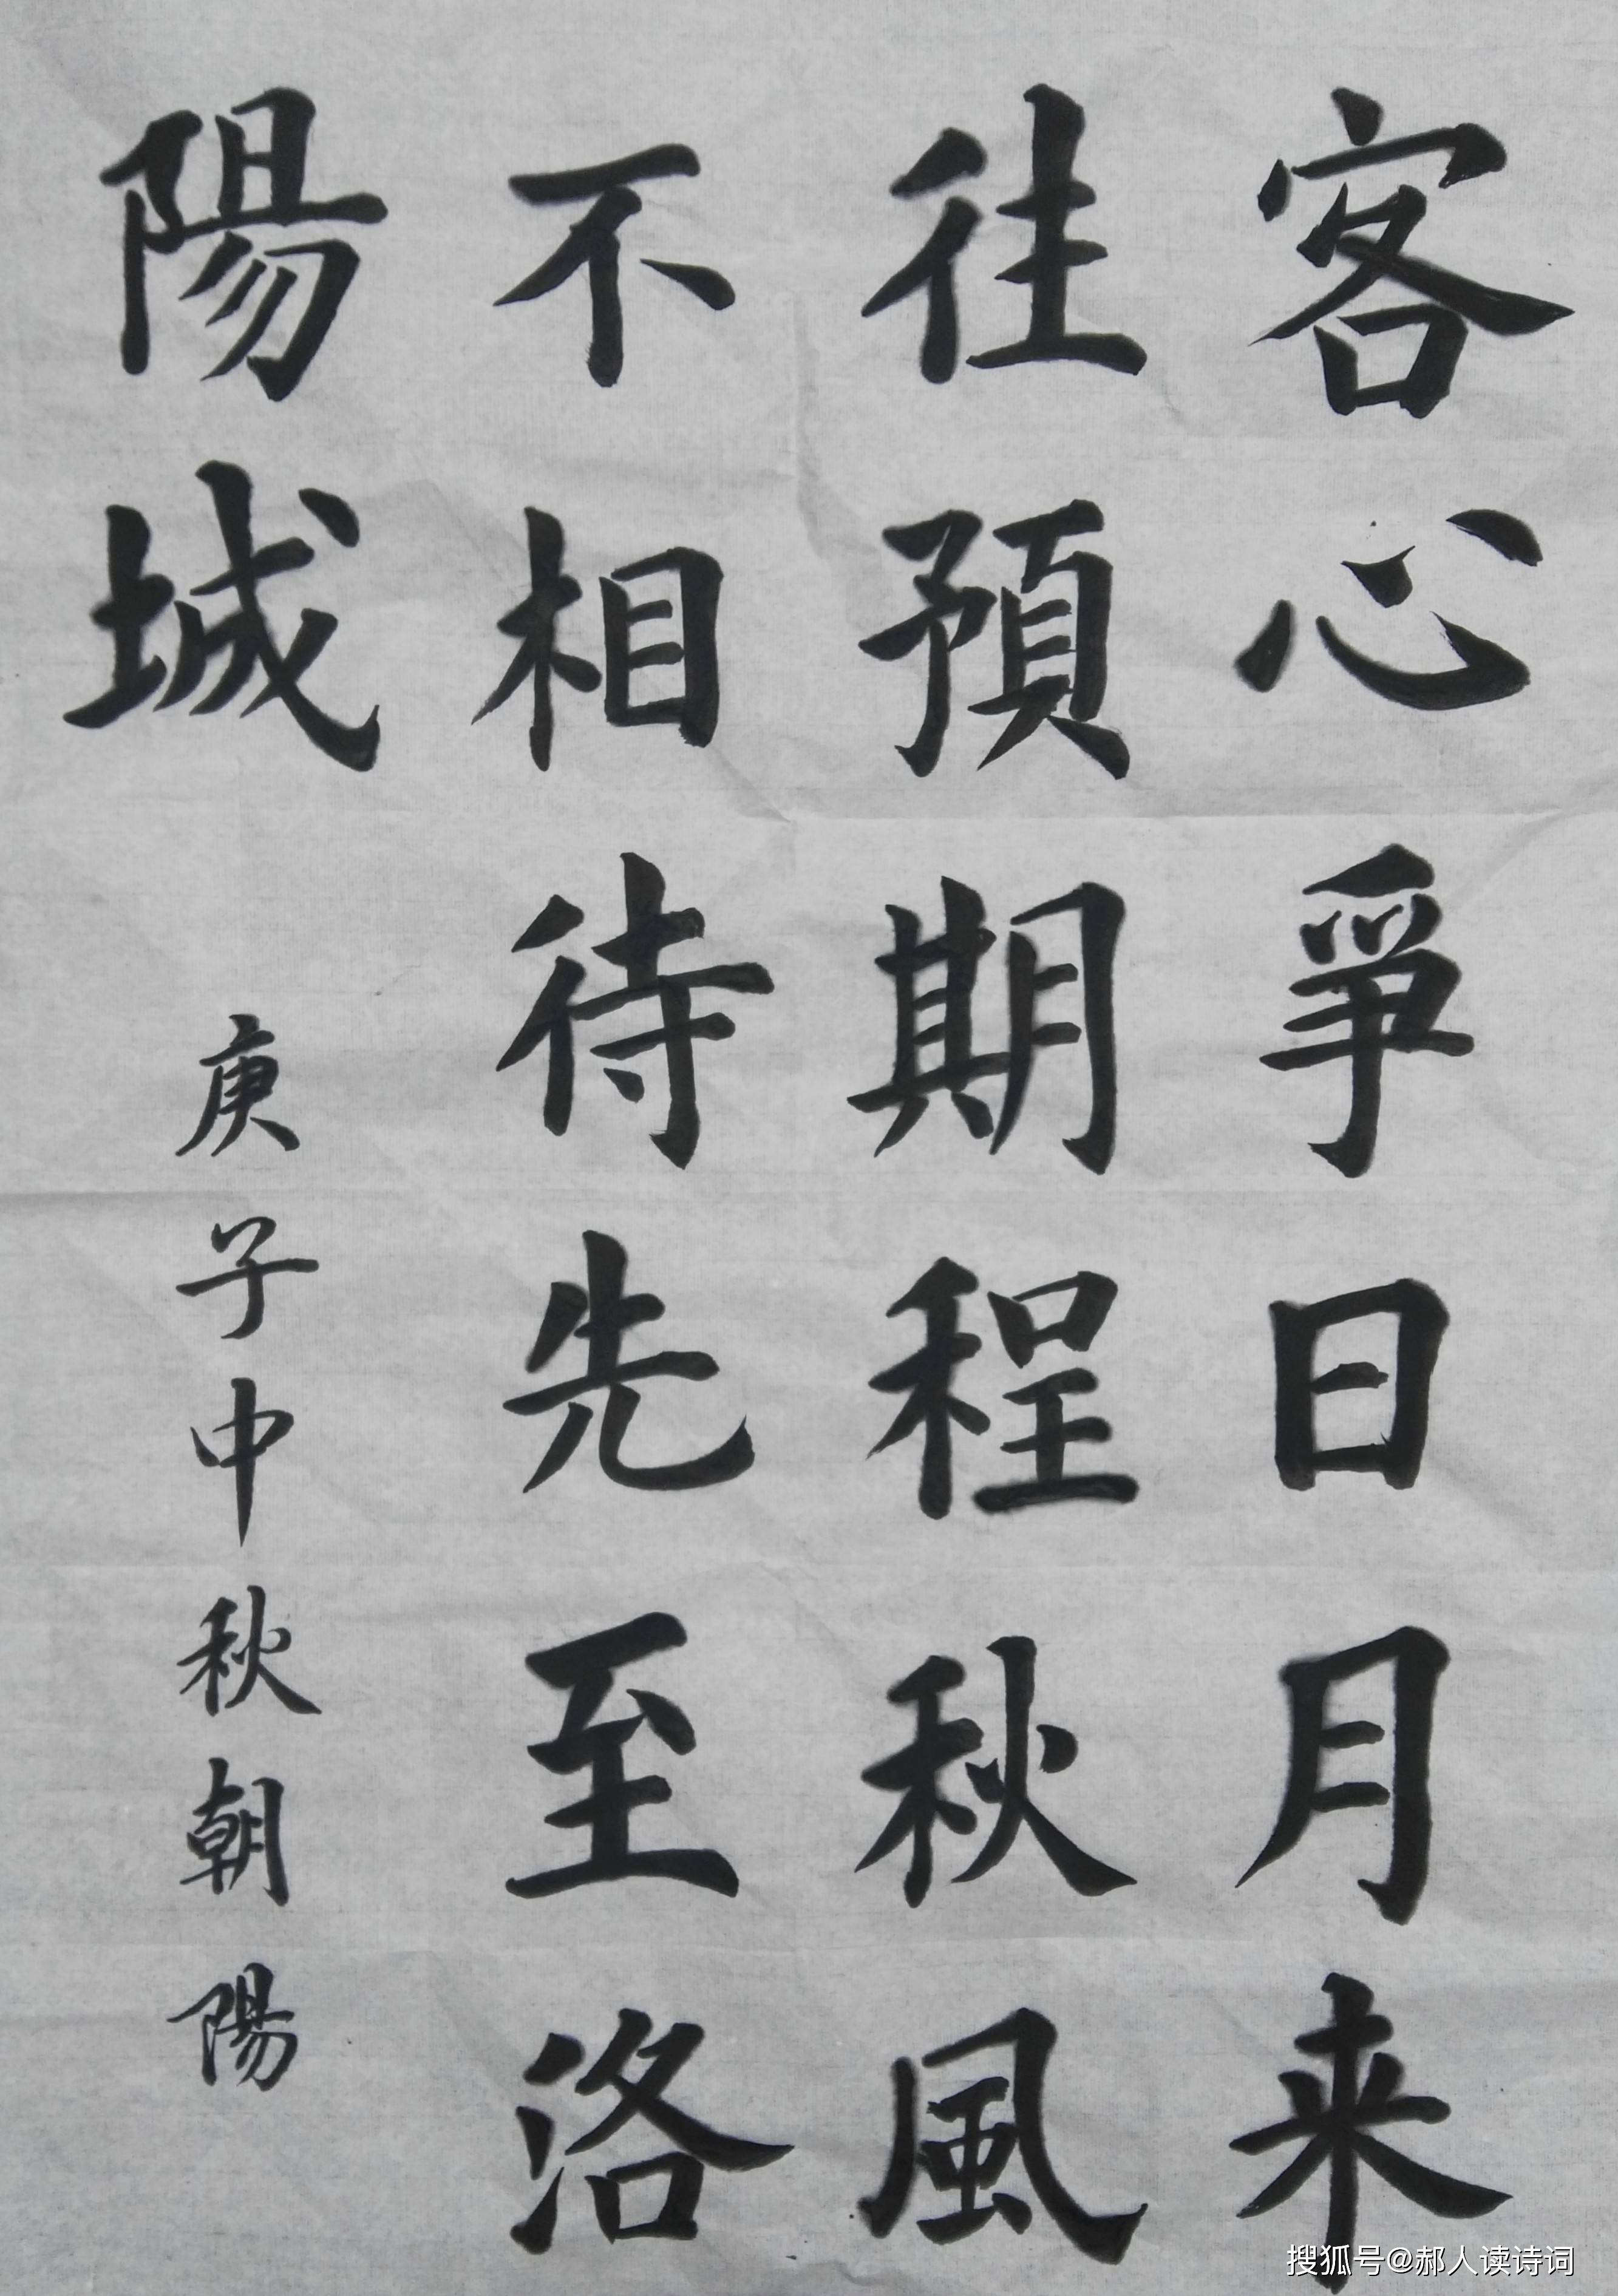 客心爭日月来
往預期程秋風
不相待先至洛
陽城
庚子中秋朝陽
搜狐号@郝人读诗词